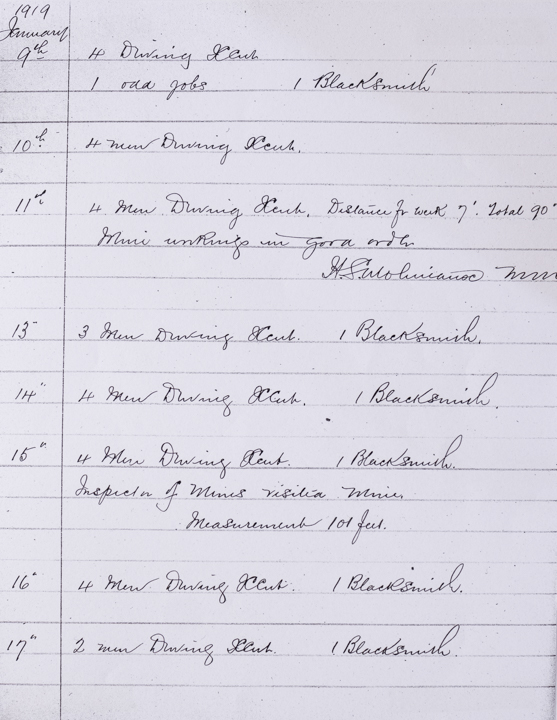 1919
January
9th 4 Driving Xcut
1 odd jobs 1 Blacksmith
10th 4 men Driving Xcut.
11th 4 Men Driving Xcut. Distance for week 7'. Total 90'
Mine workings in good order
13" 3 Men Driving Xcut. 1 Blacksmith.
14" 4 Men Driving Xcut. 1 Blacksmith.
15" 4 Men Driving Xcut. 1 Blacksmith.
Inspector of Mines visited Mine.
Measurement 101 feet.
16" 4 Men Driving XCut. 1 Blacksmith.
17" 2 men Driving Xcut. 1 Blacksmith.